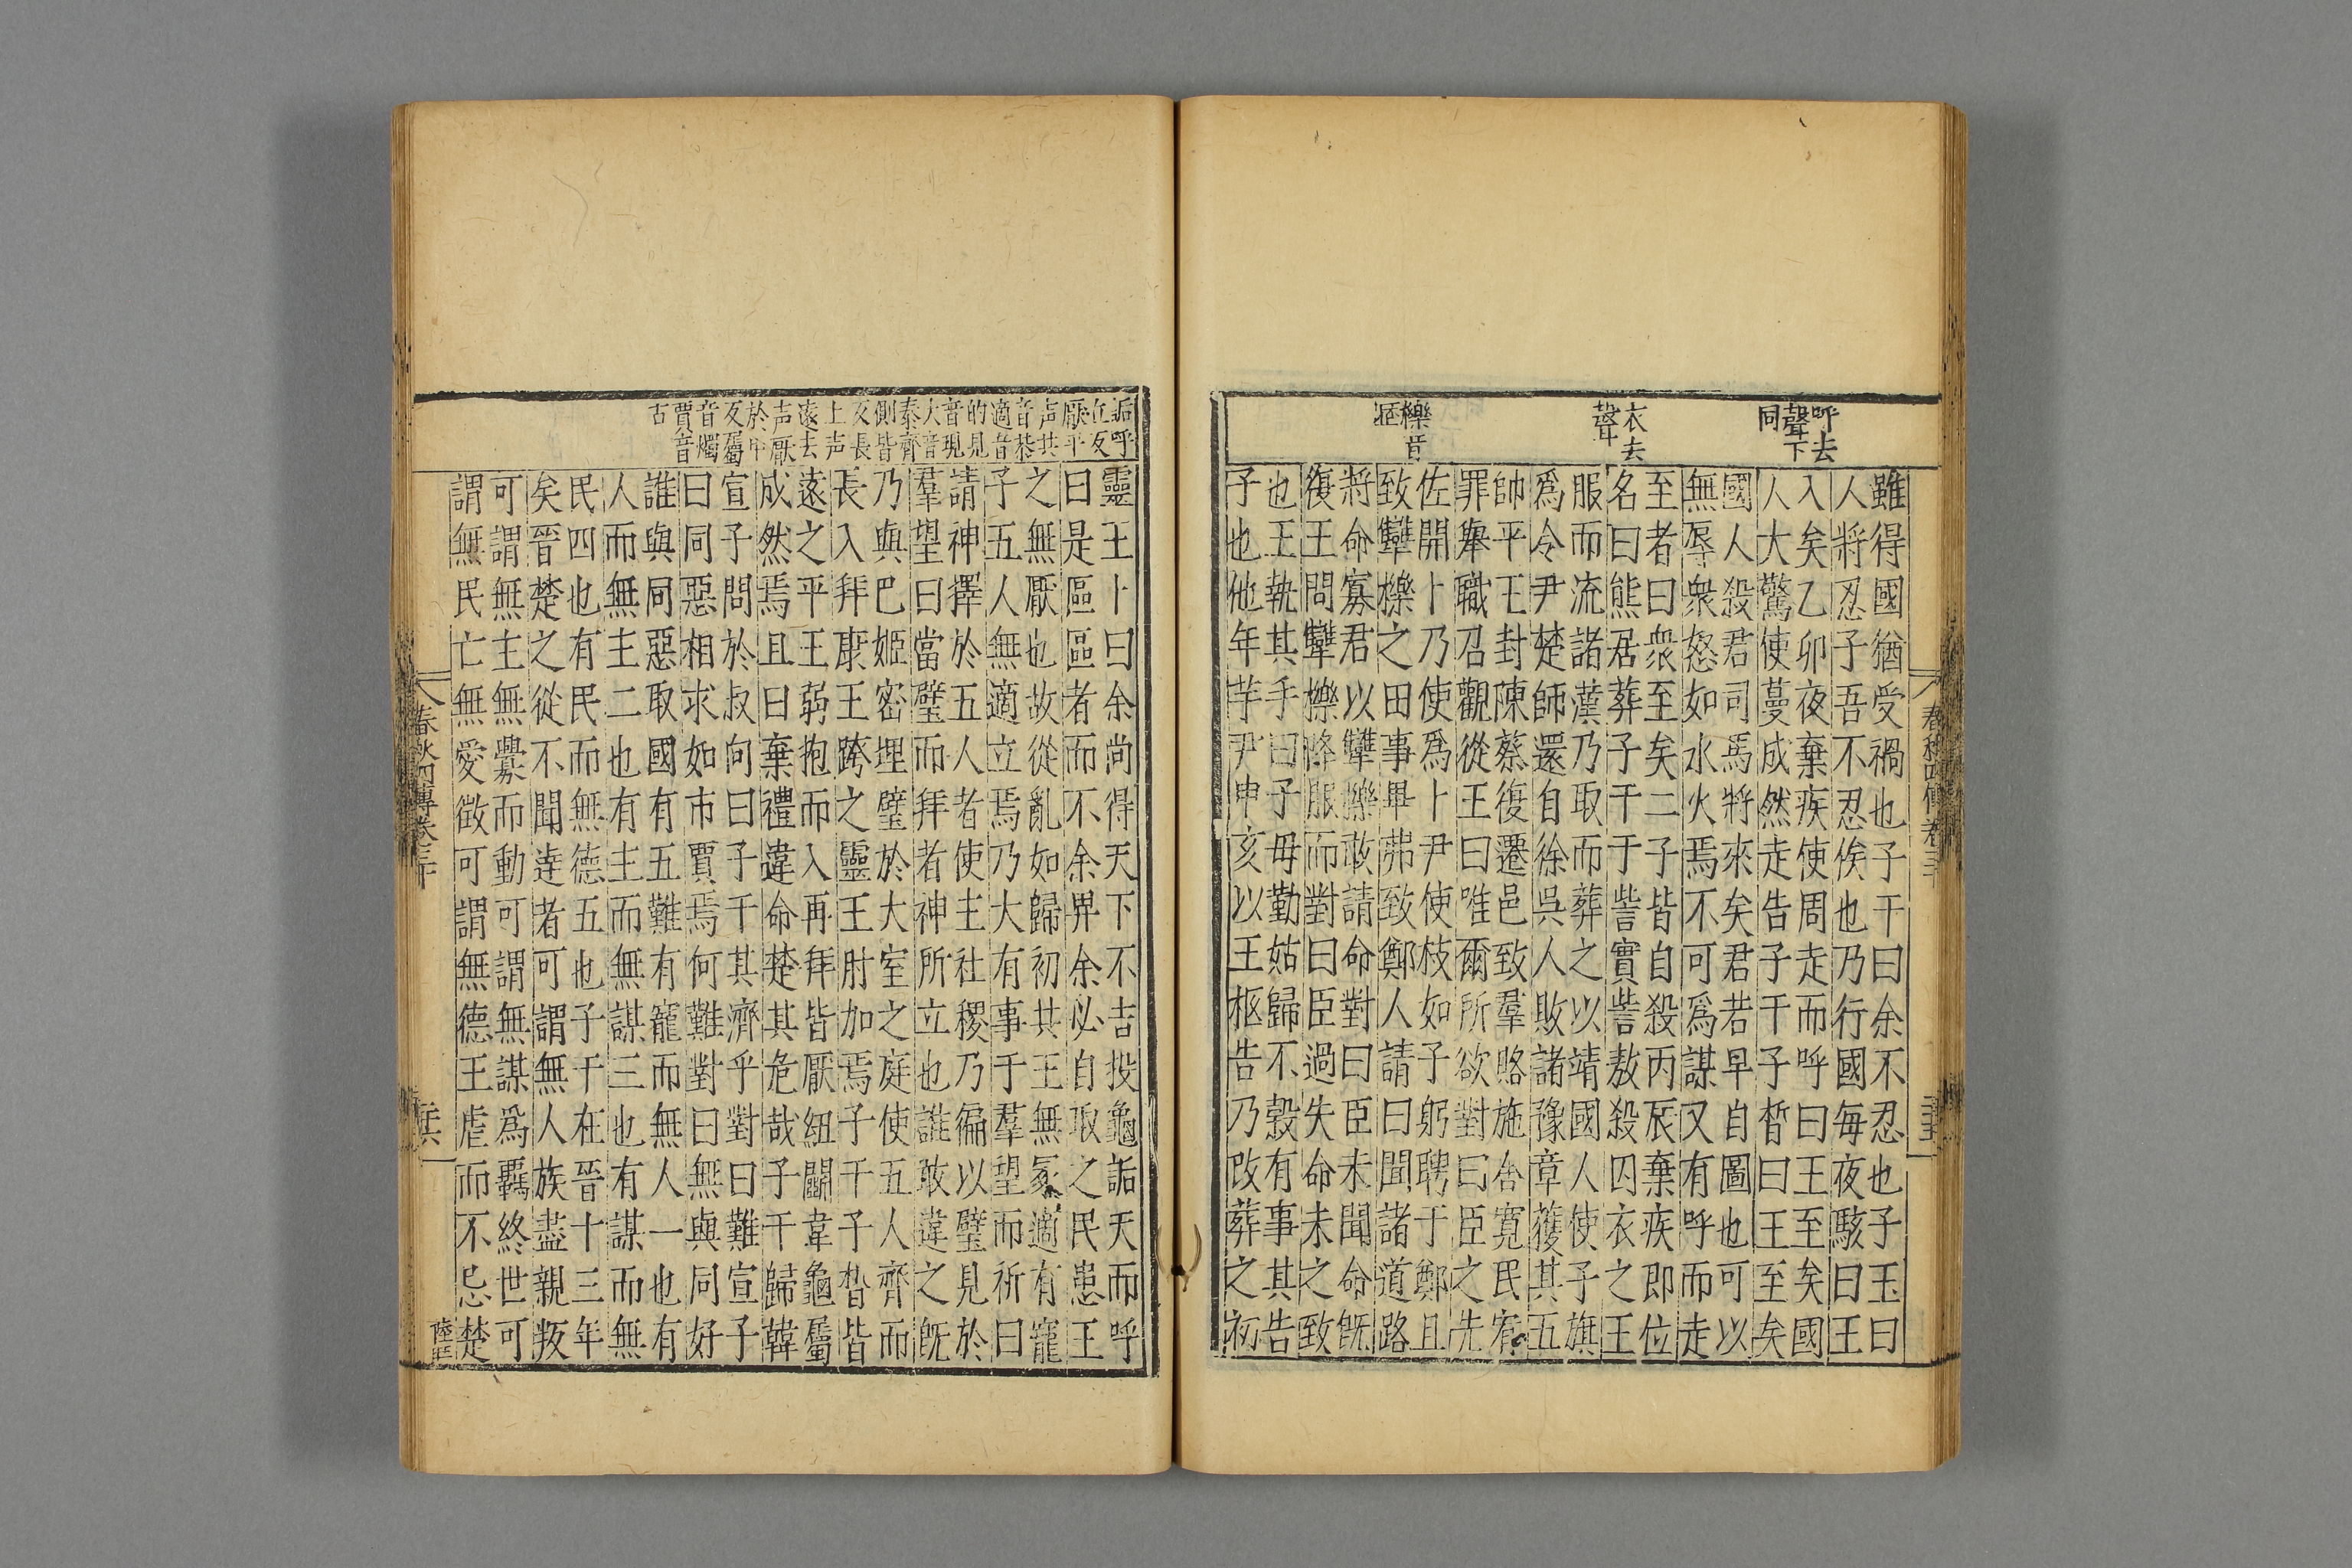 呼去
聲下
同
衣去
聲
櫟音
雖得國猶受禍也子干曰余不忍也子玉曰
人將忍子吾不忍俟也乃行國每夜駭曰王
入矣乙卯夜棄疾使周走而呼曰王至矣國
人大驚使蔓成然走告子干子晳曰王至矣
國人殺君司馬將來矣君若早自圖也可以
無辱衆怒如水火焉不可爲謀又有呼而走
至者曰衆至矣二子皆自殺丙辰棄疾即位
名曰熊居葬子干于訾實訾敖殺囚衣之王
服而流諸漢乃取而葬之以靖國人使子旗
爲令尹楚師還自徐吳人敗諸豫章獲其五
帥平王封陳蔡復遷邑致羣賂施舍寬民宥
罪舉職召觀從王曰唯爾所欲對曰臣之先
佐開卜乃使爲卜尹使枝如子躬聘于鄭且
致犨櫟之田事畢弗致鄭人請曰聞諸道路
將命寡君以犨櫟敢請命對曰臣未聞命既
復王問犨櫟降服而對曰臣過失命未之致
也王執其手曰子毋勤姑歸不穀有事其告
子也他年芋尹申亥以王柩告乃改葬之初
春秋四傳卷三十
詬呼
厭平
声共
音恭
適音
的見
音現
大音
泰齊
側皆
反長
上声
遠去
声厭
於甲
反屬
音燭
賈音
古
靈王卜曰余尚得天下不吉投龜詬天而呼
曰是區區者而不余畀余必自取之民患王
之無厭也故從亂如歸初共王無冢適有寵
子五人無適立焉乃大有事于羣望而祈曰
請神擇於五人者使主社稷乃徧以璧見於
羣望曰當璧而拜者神所立也誰敢違之既
乃與巴姬密埋璧於大室之庭使五人齊而
長入拜康王跨之靈王肘加焉子干子晳皆
遠之平王弱抱而入再拜皆厭紐鬬韋龜屬
成然焉且曰棄禮違命楚其危哉子干歸韓
宣子問於叔向曰子干其濟乎對曰難宣子
曰同惡相求如市賈焉何難對曰無與同好
誰與同惡取國有五難有寵而無人一也有
人而無主二也有主而無謀三也有謀而無
民四也有民而無德五也子干在晉十三年
矣晉楚之從不聞達者可謂無人族盡親叛
可謂無主無釁而動可謂無謀爲羇終世可
謂無民亡無愛徵可謂無德王虐而不忌楚
春秋四傳卷三十